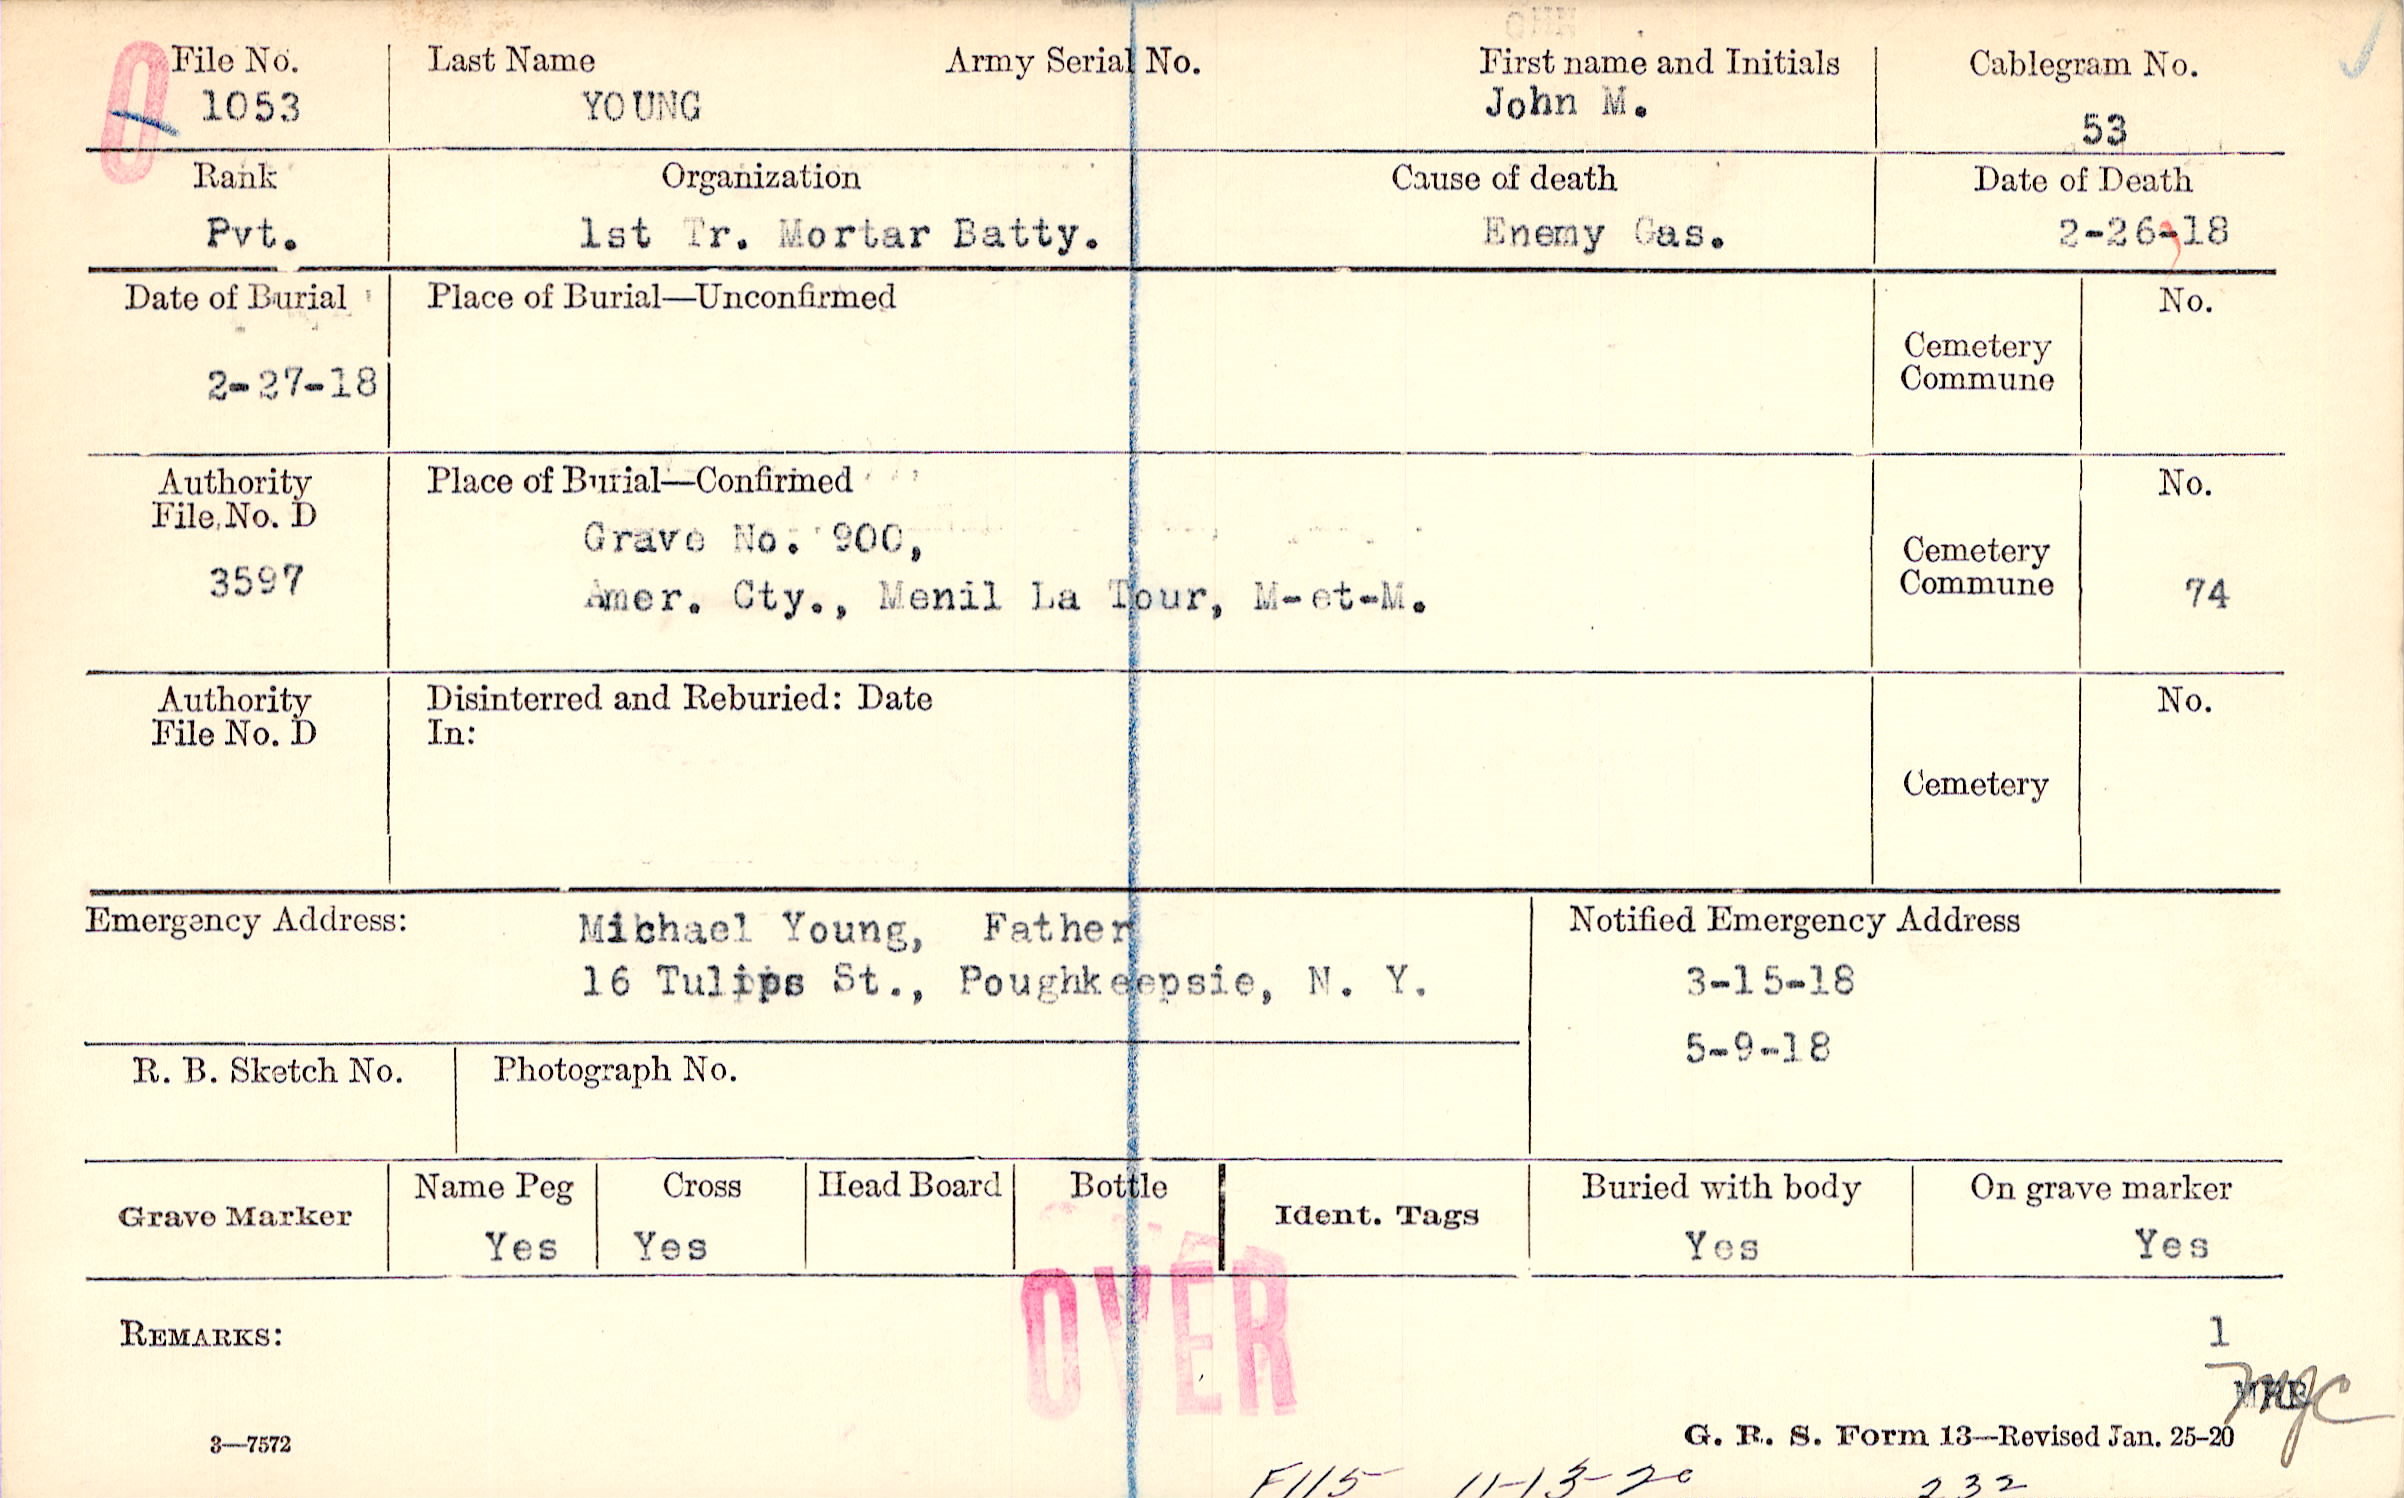 O
File No.
1053
Last Name
YOUNG
Army Serial No.
First name and Initials
John M.
Cablegram No.
53
Rank
Pvt.
Organization
1st Tr. Mortar Batty.
Cause of death
Enemy Gas.
Date of Death
2-26-18
Date of Burial
2-27-18
Place of Burial—Unconfirmed
Cemetery
Commune
No.
Authority
File No. D
3597
Place of Burial—Confirmed
Grave No. 900,
Amer. Cty., Menil La Tour, M-et-M.
Cemetery
Commune
No.
74
Authority
File No. D
Disinterred and Reburied: Date
In:
Cemetery
No.
Emergency Address:
Michael Young, Father
16 Tulips St., Poughkeepsie, N. Y.
Notified Emergency Address
3-15-18
5-9-18
R. B. Sketch No.
Photograph No.
Grave Marker
Name Peg
Yes
Cross
Yes
Head Board
Bottle
Ident. Tags
Buried with body
Yes
On grave marker
Yes
OVER
REMARKS:
1
3—7572
G. R. S. Form 13—Revised Jan. 25-20
F115 11-13-20 232